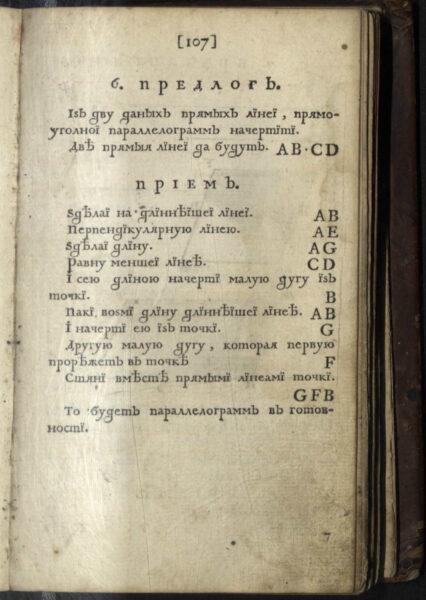 [107]
6. ПРЕДЛОГЪ.
Ізь дву даныхъ прямыхъ лїнеї, прямо-
уголної параллелограммъ начертїтї.
Двѣ прямыя лїнеї да будутъ. AB·CD
ПРІЕМЪ.
Ѕдѣлаї на длїннѣїшеї лїнеї. AB
Перпендїкулярную лїнею. AE
Ѕдѣлаї длїну. AG
Равну меншеї лїнеѣ. CD
І сею длїною начертї малую дугу їзь
точкї. B
Пакї возмї длїну длїннѣїшеї лїнеѣ. AB
І начертї ею їзь точкї. G
Другую малую дугу, которая первую
прорѣжетъ въ точкѣ F
Стянї вмѣстѣ прямымї лїнеамї точкї.
GFB
То будетъ параллелограммъ въ готов-
ності.
7